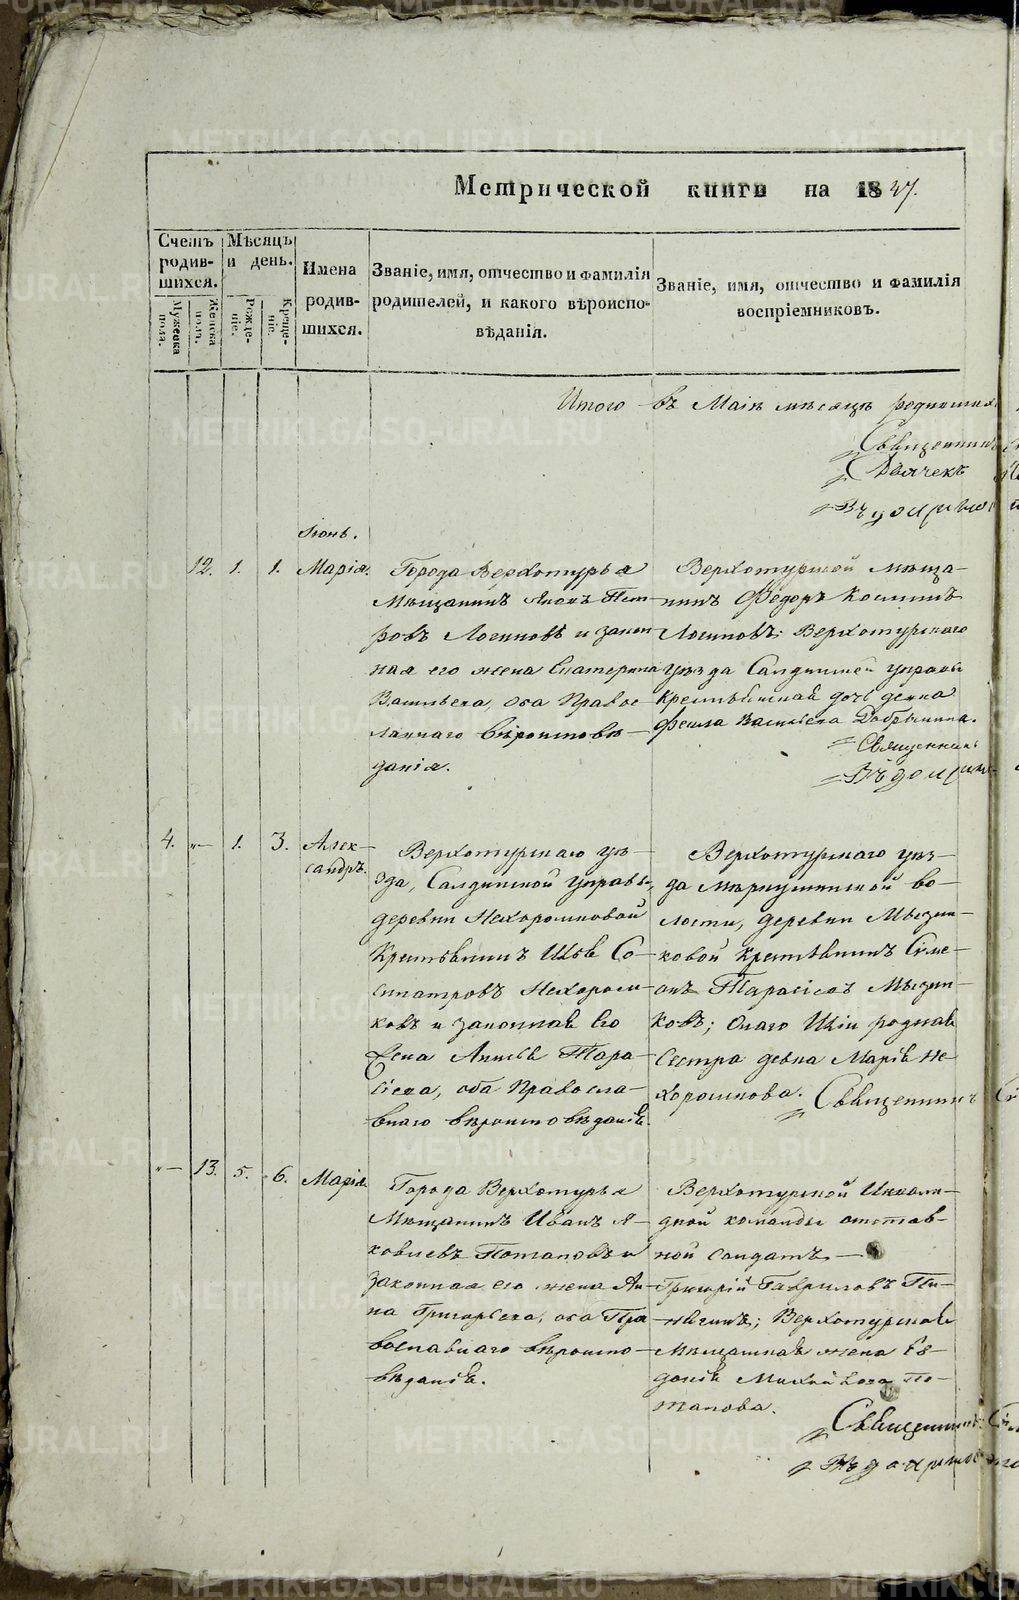 Метрической книги на 1847.
Счетъ родив- шихся.
Мѣсяцъ и день.
Имена родив- шихся.
Званіе, имя, отчество и фамилія родителей, и какого вѣроиспо- вѣданія.
Званіе, имя, отчество и фамилія воспріемниковъ.
Мужеска пола.
Женска пола.
Рожде- ніе.
Креще- ніе.
Итого въ Маіѣ мѣсяцѣ родившихся
Священникъ
Дьячекъ
Іюнь.
12. 1. 1. Марія.
Города Верхотурья
Мѣщанинъ Яковъ Пет-
ровъ Логиновъ и закон
ная его жена Екатерина
Васильева, оба Правос
лавнаго Вѣроисповѣ-
данія.
Верхотурской мѣща-
нинъ Федоръ Косминъ
Логиновъ; Верхотурскаго
уѣзда Салдинской управы
крестьянская дочь девка
Фекла Васильева Добрынина.
Священникъ
4. "— 1. 3. Алек-
сандръ.
Верхотурскаго уѣ-
зда, Салдинской Управы,
деревни Нехорошковой
Крестьянинъ Илья Со-
сипатровъ Нехорош-
ковъ и законная Его
Жена Анисья Тара-
сіева, оба Правосла-
внаго вѣроисповѣданія.
Верхотурскаго уѣз-
да Меркушинской во-
лости, деревни Мызни-
ковой Крестьянинъ Симе-
онъ Тарасіевъ Мызни-
ковъ; Онаго Иліи родная
Сестра девка Марія Не-
хорошкова. Священникъ
"— 13. 5. 6. Марія
Города Верхотурья
Мѣщанинъ Иванъ Я-
ковлевъ Потаповъ и
законная его жена Ан-
на Григорьева, оба Пра
вославнаго вѣроиспо-
вѣданія.
Верхотурской Инвали-
дной команды отстав-
ной солдатъ —
Григорій Гавриловъ Пи-
нягинъ; Верхотурская
Мѣщанская жена Ев-
докія Михайлова По-
тапова.
Священникъ